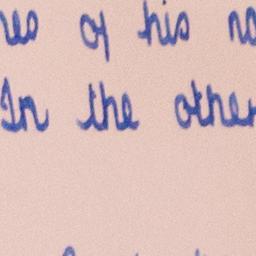 of his
In the other